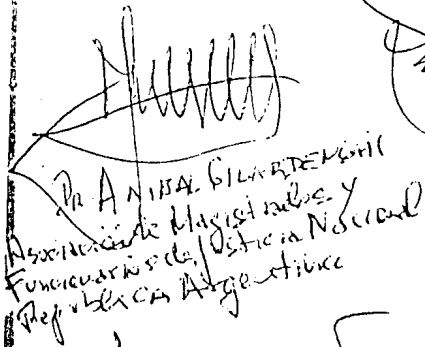 Dr ANIBAL GILARDENGHI
Asociación de Magistrados y
Funcionarios de Justicia Nacional
República Argentina